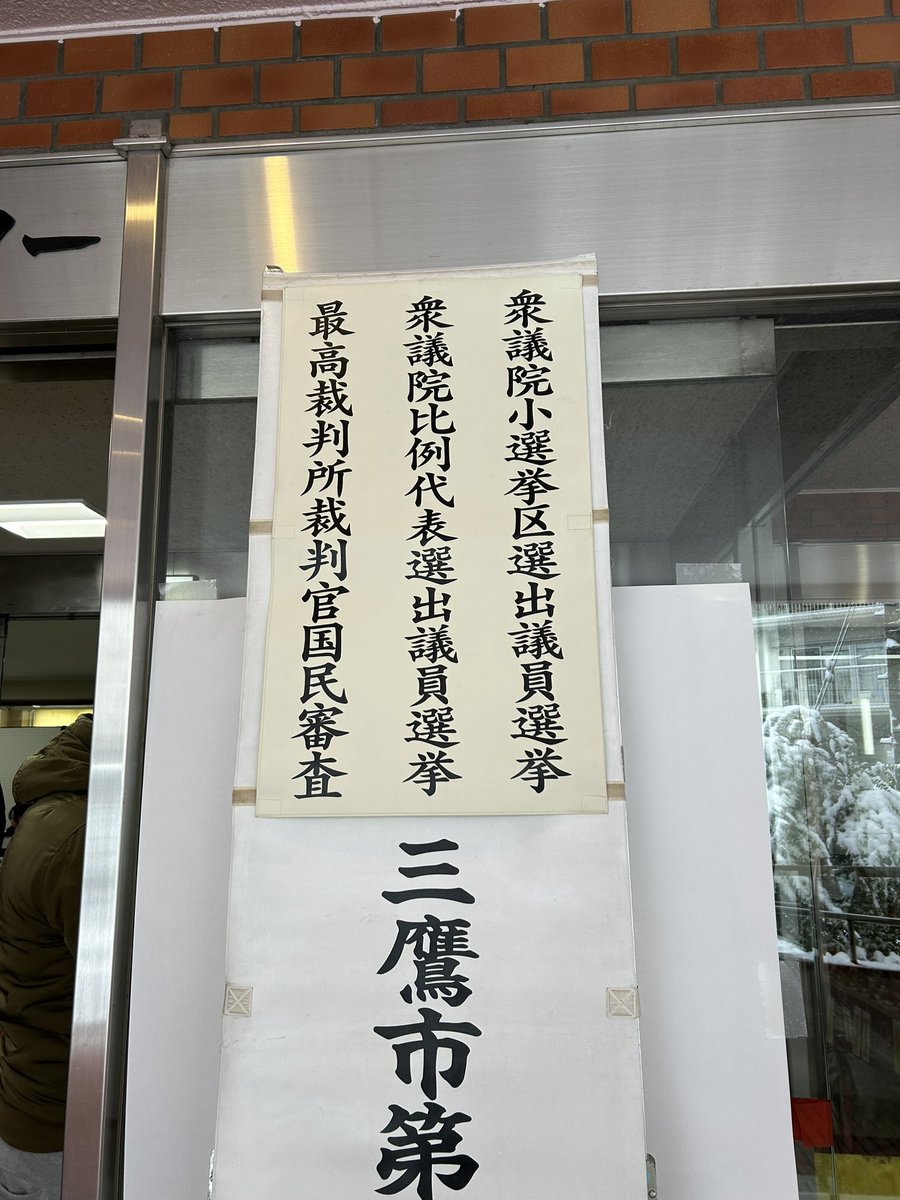 衆議院小選挙区選出議員選挙
衆議院比例代表選出議員選挙
最高裁判所裁判官国民審査
三鷹市第